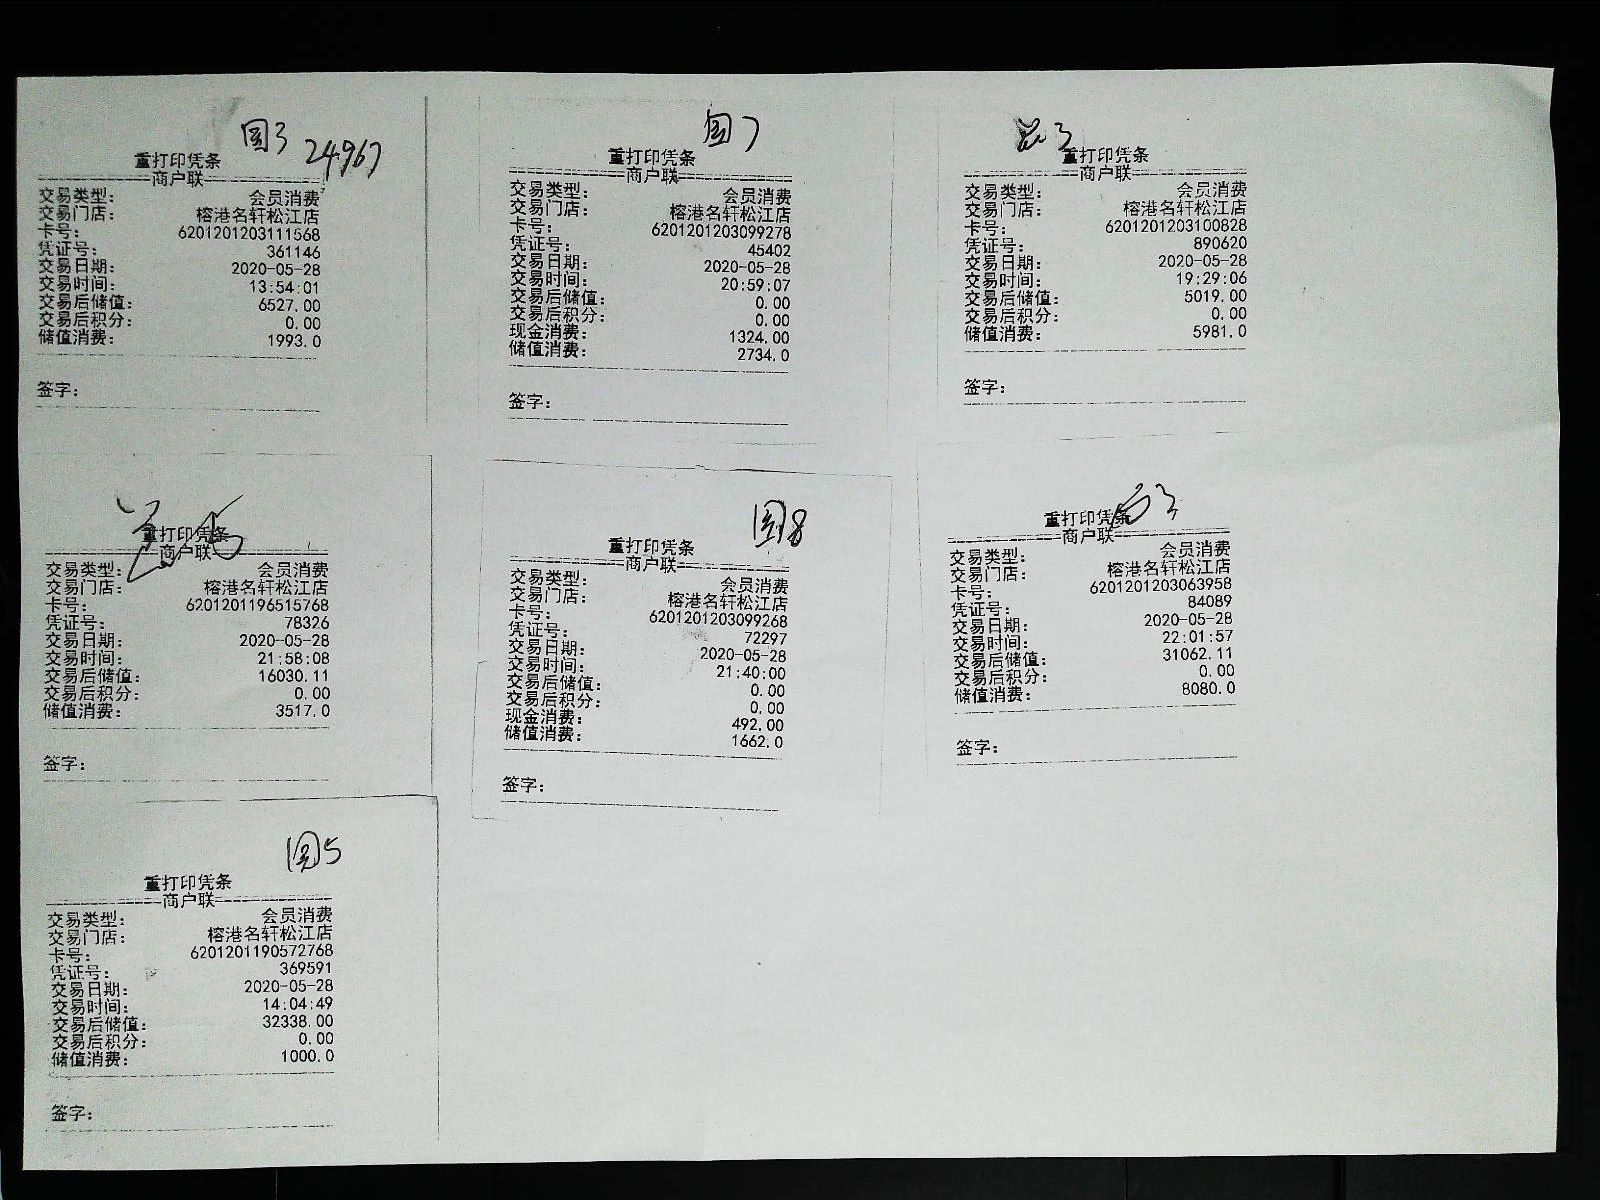 图3 24967
重打印凭条
商户联
交易类型: 会员消费
交易门店: 榕港名轩松江店
卡号: 6201201203111568
凭证号: 361146
交易日期: 2020-05-28
交易时间: 13:54:01
交易后储值: 6527.00
交易后积分: 0.00
储值消费: 1993.0
签字:
图7
重打印凭条
商户联
交易类型: 会员消费
交易门店: 榕港名轩松江店
卡号: 6201201203099278
凭证号: 45402
交易日期: 2020-05-28
交易时间: 20:59:07
交易后储值: 0.00
交易后积分: 0.00
现金消费: 1324.00
储值消费: 2734.0
签字:
重打印凭条
商户联
交易类型: 会员消费
交易门店: 榕港名轩松江店
卡号: 6201201203100828
凭证号: 890620
交易日期: 2020-05-28
交易时间: 19:29:06
交易后储值: 5019.00
交易后积分: 0.00
储值消费: 5981.0
签字:
重打印凭条
商户联
交易类型: 会员消费
交易门店: 榕港名轩松江店
卡号: 6201201196515768
凭证号: 78326
交易日期: 2020-05-28
交易时间: 21:58:08
交易后储值: 16030.11
交易后积分: 0.00
储值消费: 3517.0
签字:
图8
重打印凭条
商户联
交易类型: 会员消费
交易门店: 榕港名轩松江店
卡号: 6201201203099268
凭证号: 72297
交易日期: 2020-05-28
交易时间: 21:40:00
交易后储值: 0.00
交易后积分: 0.00
现金消费: 492.00
储值消费: 1662.0
签字:
重打印凭条
商户联
交易类型: 会员消费
交易门店: 榕港名轩松江店
卡号: 6201201203063958
凭证号: 84089
交易日期: 2020-05-28
交易时间: 22:01:57
交易后储值: 31062.11
交易后积分: 0.00
储值消费: 8080.0
签字:
图5
重打印凭条
商户联
交易类型: 会员消费
交易门店: 榕港名轩松江店
卡号: 6201201190572768
凭证号: 369591
交易日期: 2020-05-28
交易时间: 14:04:49
交易后储值: 32338.00
交易后积分: 0.00
储值消费: 1000.0
签字: